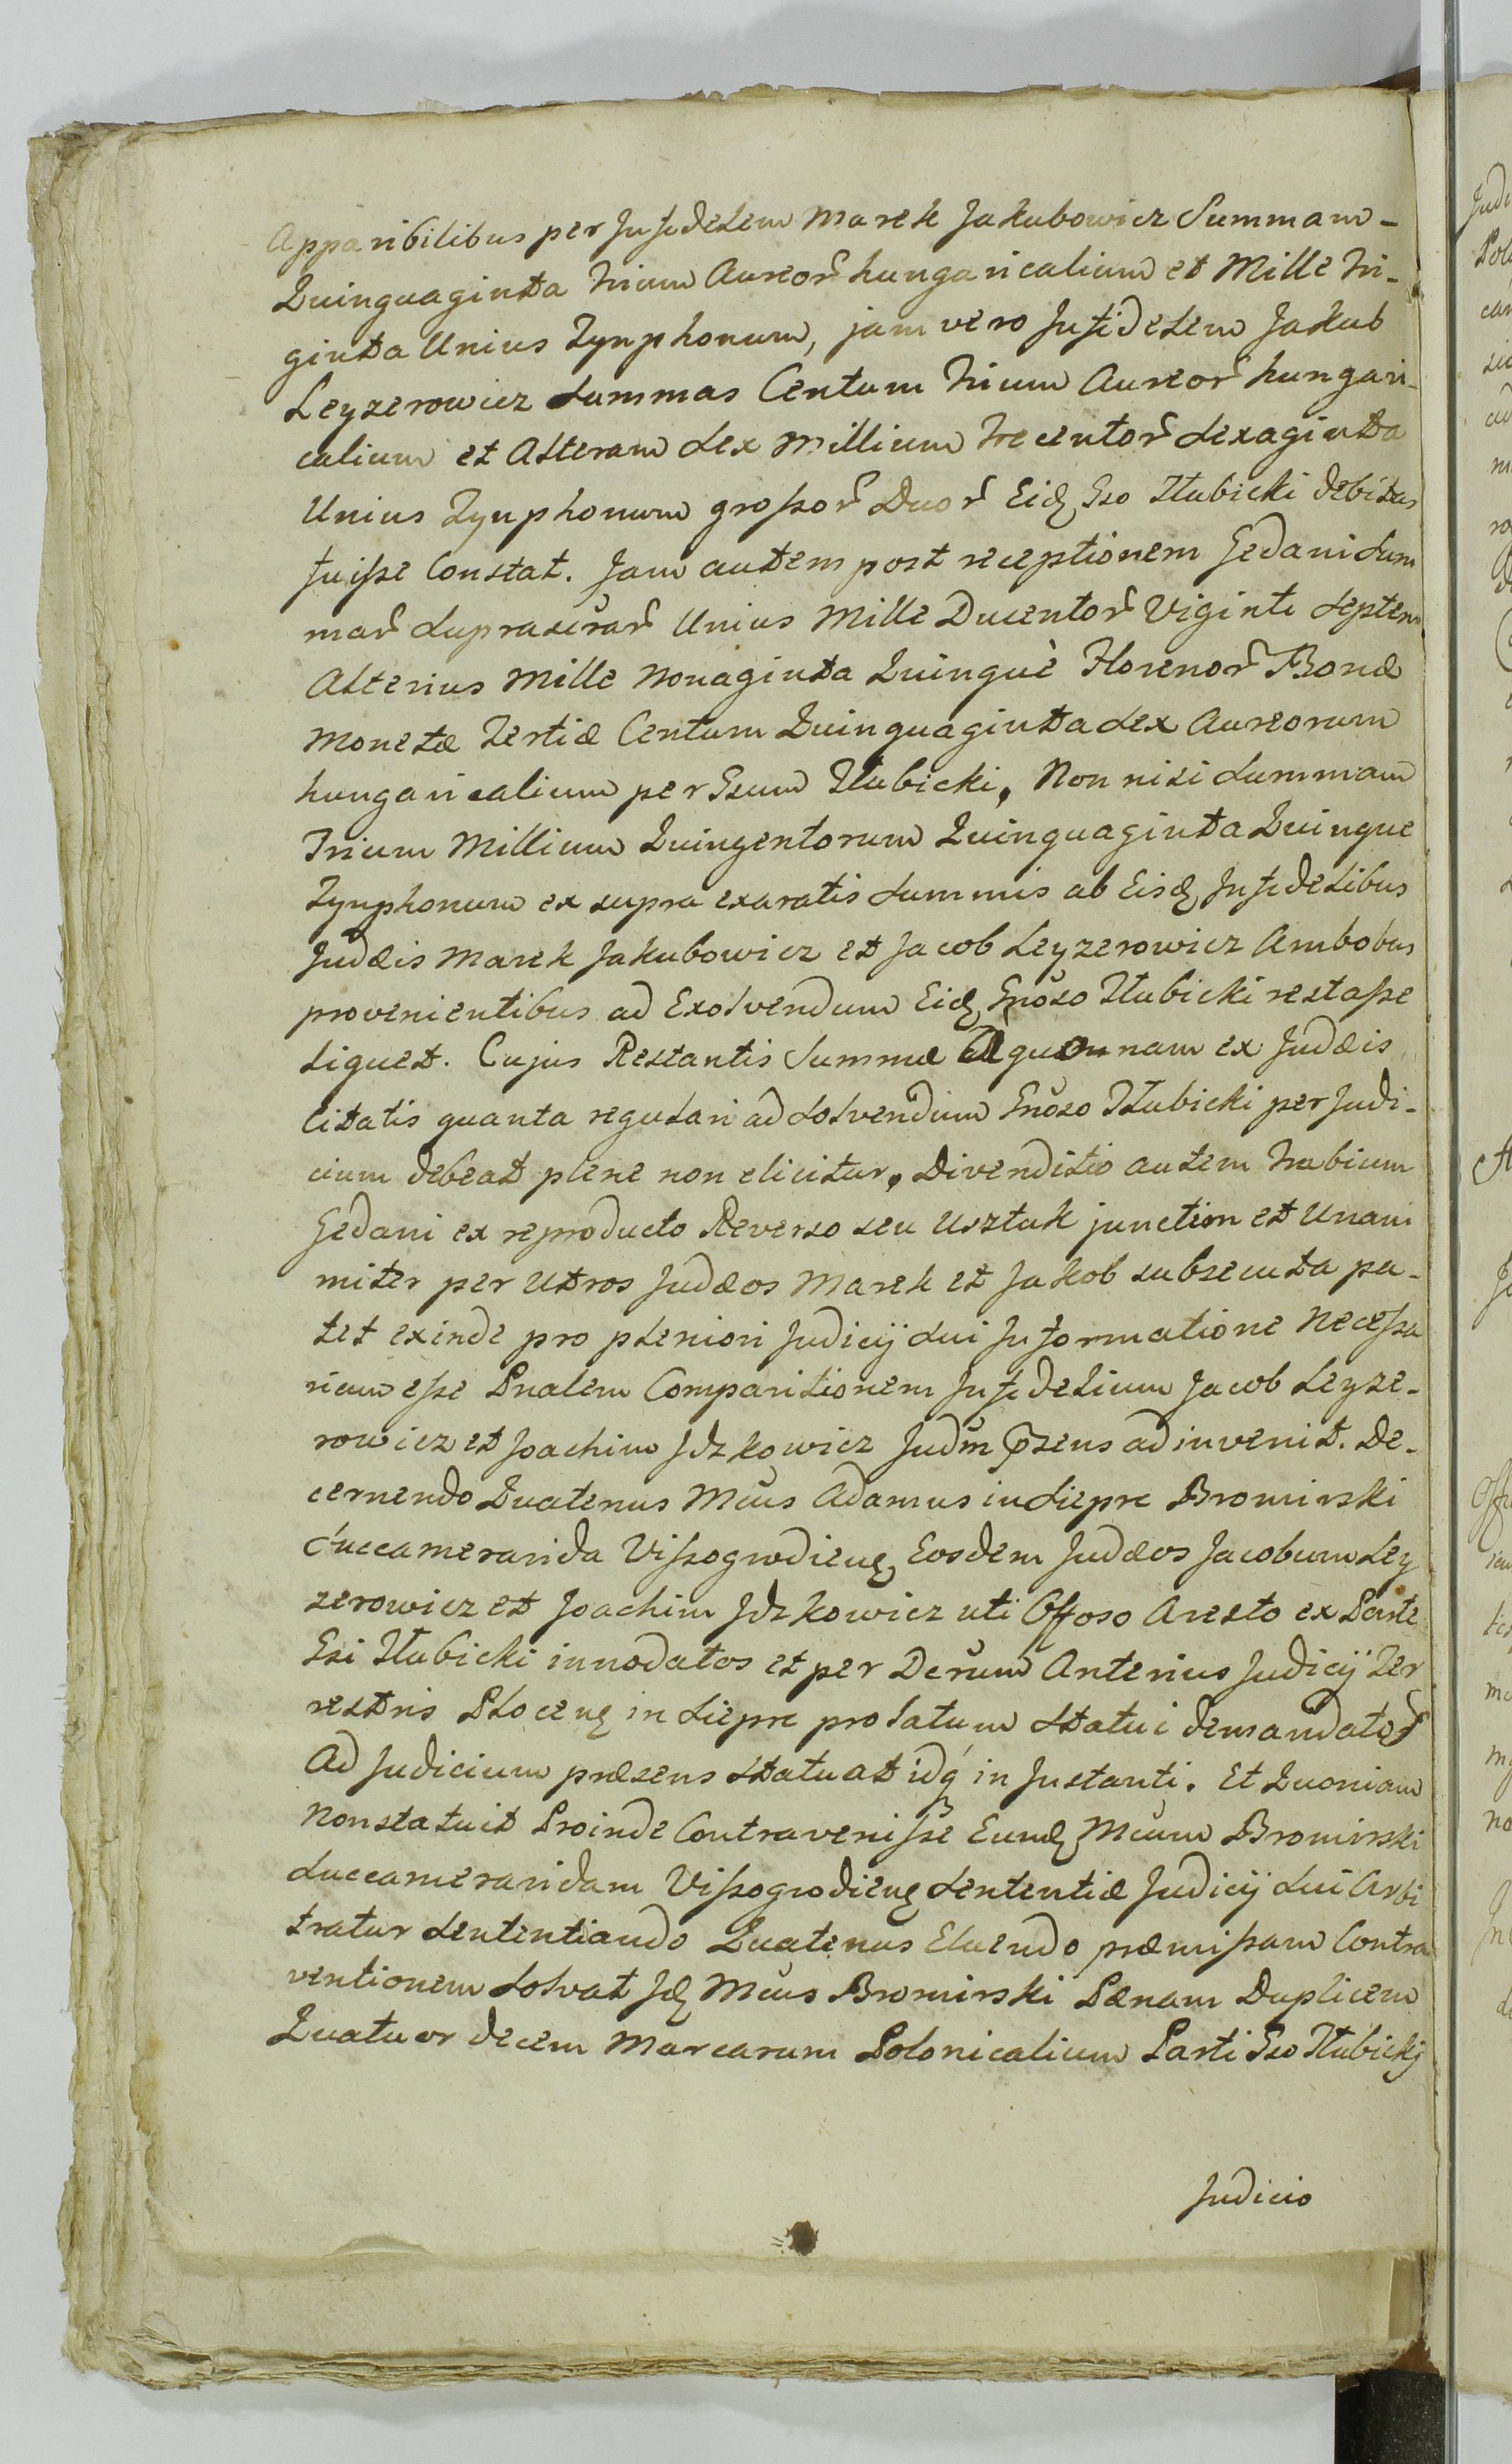 Apparibilibus per Infidelem Marek Jakubowicz Summam-
Quinquaginta trium Aureor̃ hungaricalium et Mille tri-
ginta Unius Tynphonum, jam vero Infidelem Jakub
Leyzerowicz Summas Centum trium Aureor̃ hungari-
calium et Alteram Sex Millium trecentor̃ Sexaginta
Unius Tynphonum großor̃ Duor̃ Eidꝫ Gso Słubicki debitas
fuiße Constat. Jam autem post receptionem Gedani Sum
mar̃ Suprascrar̃ Unius Mille Ducentor̃ Viginti Septem
Alterius Mille Nonaginta Quinquè Florenor̃ Bonæ
Monetæ Tertiæ Centum Quinquaginta Sex Aureorum
hungaricalium per Gsum Słubicki, Non nisi Summam
Trium Millium Quingentorum Quinquaginta Quinque
Tynphonum ex supra exaratis Summis ab Eisdꝫ Infidelibus
Judæis Marek Jakubowicz et Jacob Leyzerowicz Ambobus
provenientibus ad Exolvendum Eidꝫ Gnoso Słubicki restaße
liquet. Cujus Restantis Summæ A quonam ex Judæis
Citatis quanta regulari ad Solvendum Gnoso Słubicki per Judi-
cium debeat plene non elicitur, Divenditio autem trabium
Gedani ex reproducto Reverso seu Usztuk junctim et Unani
miter per Utros Judæos Marek et Jakob subsecuta pa-
tet exinde pro pleniori Judicij Sui Informatione Neceßa
rium eße Pnalem Comparitionem Infidelium Jacob Leyze-
rowicz et Joachim Jdzkowicz Judm̃ Pzens adinvenit. De-
cernendo Quatenus Mcus Adamus in Siepre Bromirski
Succamerarida Vißogrodienꝫ Eosdem Judæos Jacobum Ley
zerowicz et Joachim Jdzkowicz uti Offoso Aresto ex Parte
Gsi Słubicki innodatos et per Decrum Anterius Judicij Ter
restris Plocenꝫ in Siepre prolatum Statui demandatos
Ad Judicium præsens Statuat idq́ in Instanti. Et Quoniam
Non statuit Proinde Contraveniße Eundꝫ Mcum Bromirski
Succameraridam Vißogrodienꝫ Sententiæ Judicij Sui Arbi
tratur Sententiando Quatenus Eluendo præmißam Contra
ventionem Solvat Jdꝫ Mcus Bromirski Pænam Duplicem
Quatuor decem Marcarum Polonicalium Parti Gso Słubickij
Judicio